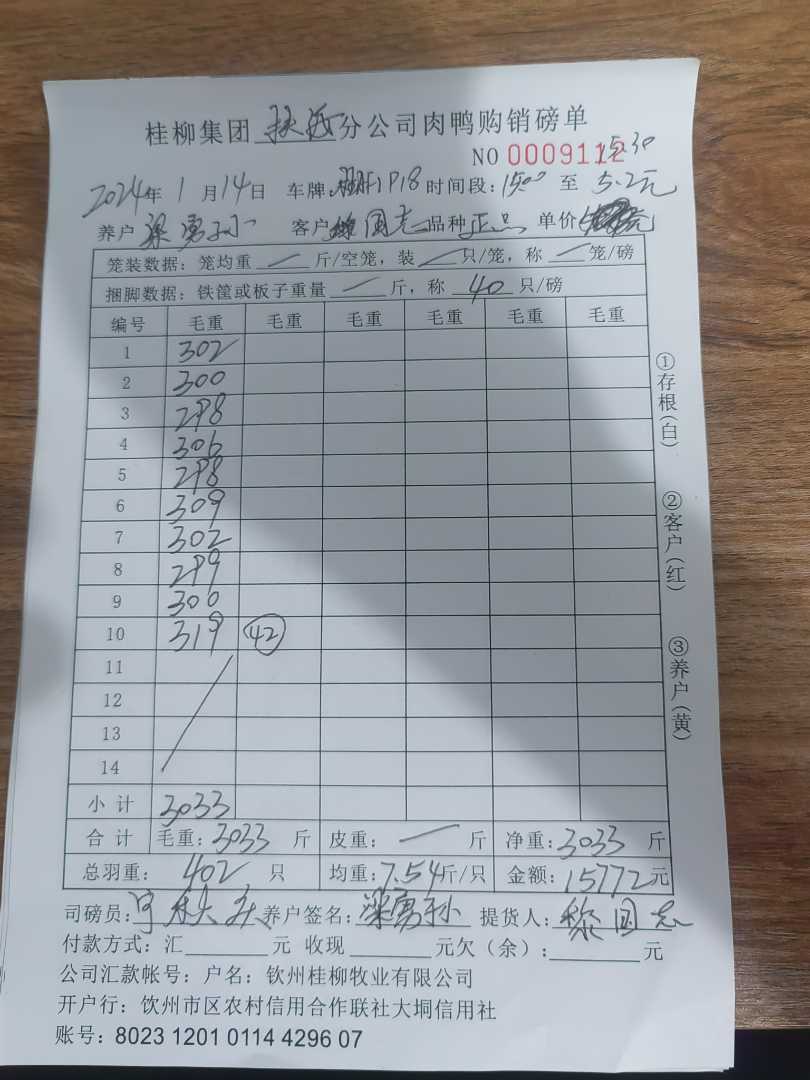 桂柳集团 分公司肉鸭购销磅单
NO 0009112
15:30
2024年 1 月 14日 车牌: P18 时间段: 1500 至 5.2元
养户 梁勇孙 客户 国志 品种 正品 单价 元
笼装数据: 笼均重 — 斤/空笼, 装 — 只/笼, 称 — 笼/磅
捆脚数据: 铁筐或板子重量 — 斤, 称 40 只/磅
编号 毛重 毛重 毛重 毛重 毛重 毛重
1 302
2 300
3 298
4 306
5 298
6 309
7 302
8 299
9 300
10 319 42
11
12
13
14
小计 3033
合计 毛重: 3033 斤 皮重: — 斤 净重: 3033 斤
总羽重: 402 只 均重: 7.54斤/只 金额: 15772元
司磅员: 养户签名: 梁勇孙 提货人: 黎国志
付款方式: 汇 元 收现 元欠(余): 元
公司汇款帐号: 户名: 钦州桂柳牧业有限公司
开户行: 钦州市区农村信用合作联社大垌信用社
账号: 8023 1201 0114 4296 07
①存根(白)
②客户(红)
③养户(黄)